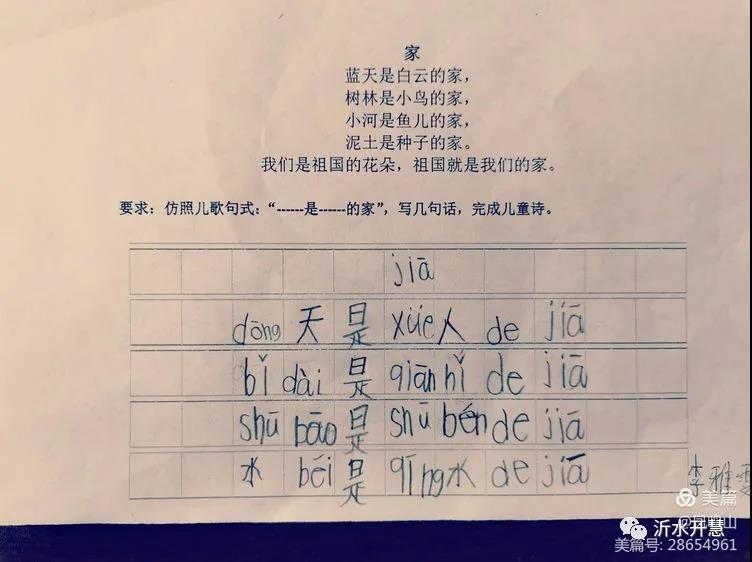 家
蓝天是白云的家，
树林是小鸟的家，
小河是鱼儿的家，
泥土是种子的家。
我们是祖国的花朵，祖国就是我们的家。
要求：仿照儿歌句式：“------是------的家”，写几句话，完成儿童诗。
jiā
dōng 天 是 xüe人 de jiā
bǐ dài 是 qiān bǐ de jiā
shū bāo 是 shū běn de jiā
水 bēi 是 qīng水 de jiā
李雅
美篇
沂水开慧
美篇号: 28654961